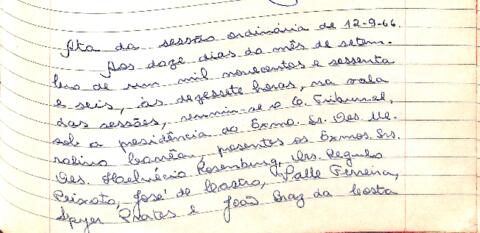 Ata da sessão ordinária de 12-9-66.
Aos doze dias do mês de setem-
bro de um mil novecentos e sessenta
e seis, às dezessete horas, na sala
das sessões, reuniu-se o E. Tribunal,
sob a presidência do Exmo. Sr. Des. Me-
rolino Corrêa, presentes os Exmos. Srs.
Des. Helvécio Rosenburg, Drs. Régulo
Peixoto, José de Castro, Valle Ferreira,
Spyer Prates e João Braz da Costa